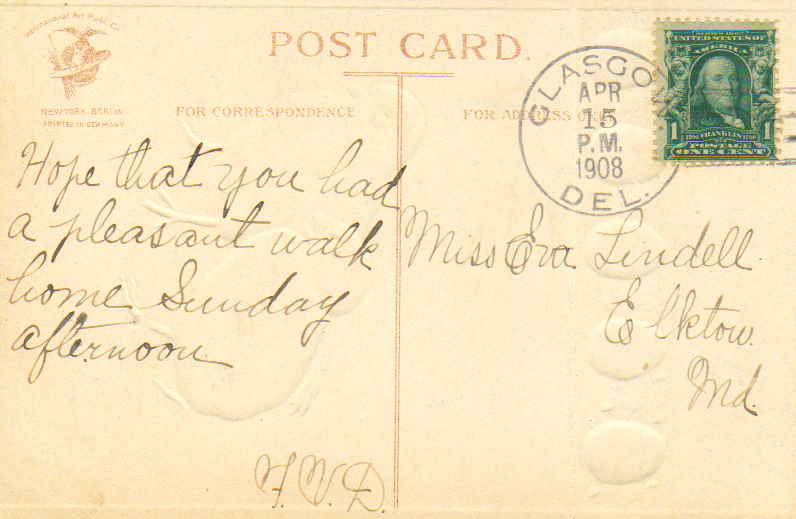 International Art Publ. Co.
NEW YORK-BERLIN
PRINTED IN GERMANY
POST CARD.
FOR CORRESPONDENCE
FOR ADDRESS
GLASGOW
APR
15
P.M.
1908
DEL.
SERIES 1902
UNITED STATES OF
AMERICA
1 FRANKLIN 1
POSTAGE
ONE CENT
Hope that you had
a pleasant walk
home Sunday
afternoon
F.V.D.
Miss Eva Lindell.
Elkton.
Md.